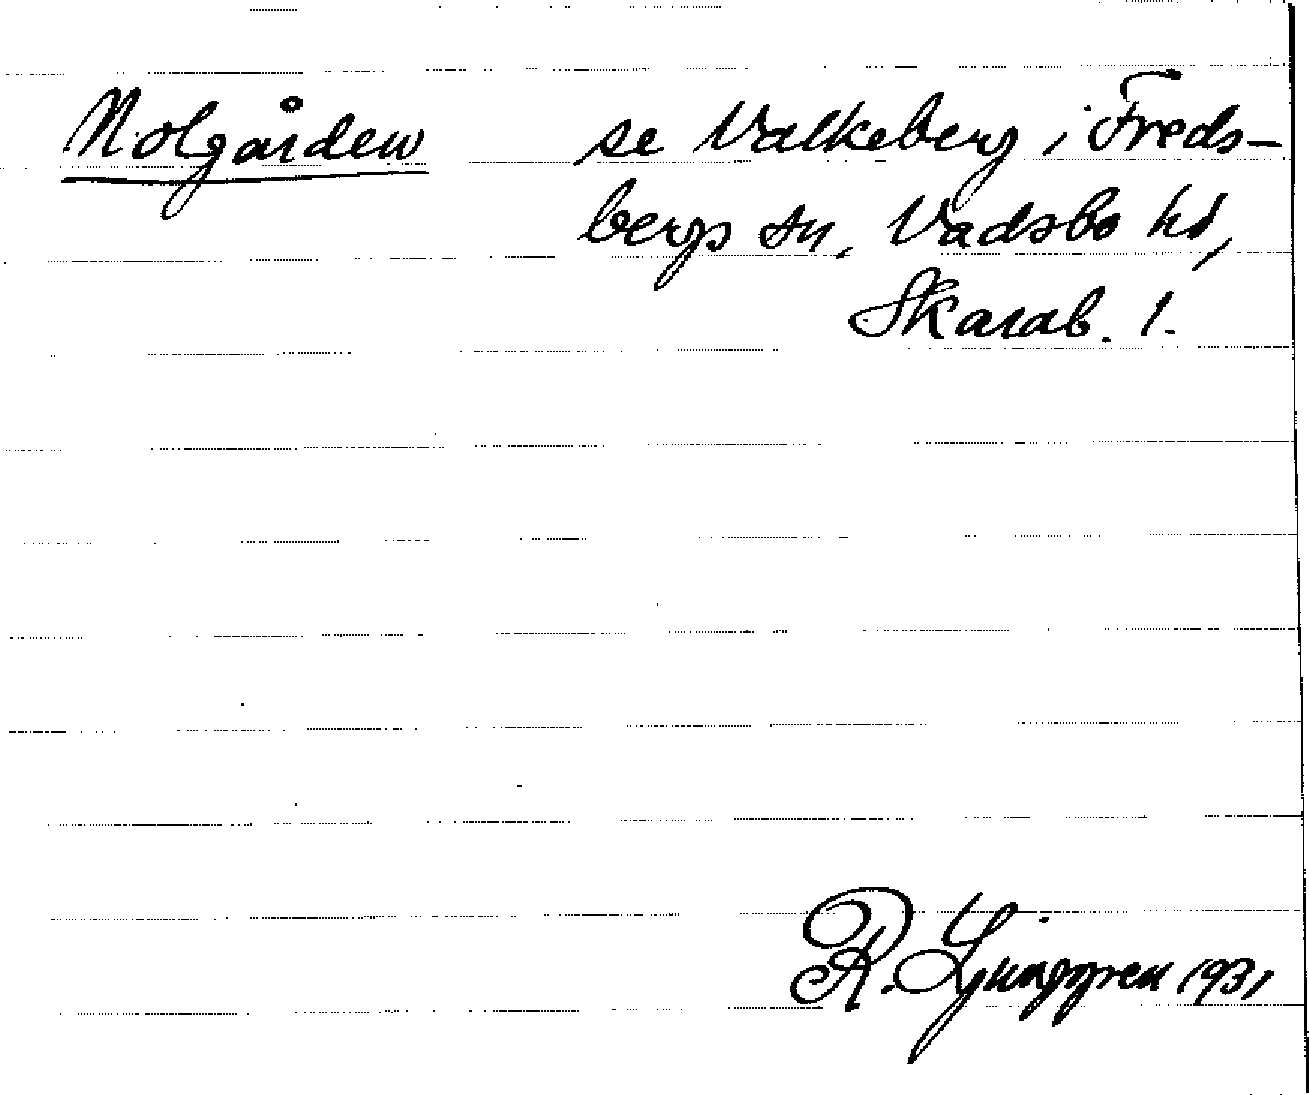 Nolgården se Valkeberg i Freds-
bergs sn, Vadsbo hd,
Skarab. l.
R. Ljunggren 1931